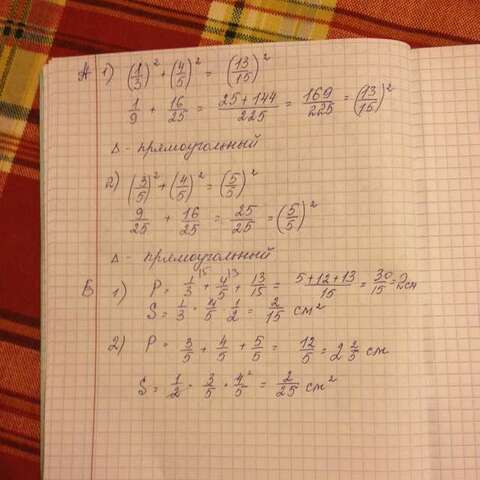 А 1) (1/3)² + (4/5)² = (13/15)²
1/9 + 16/25 = 25+144/225 = 169/225 = (13/15)²
Δ - прямоугольный
2) (3/5)² + (4/5)² = (5/5)²
9/25 + 16/25 = 25/25 = (5/5)²
Δ - прямоугольный
В 1) P = 1/3 + 4/5 + 13/15 = 5+12+13/15 = 30/15 = 2см
S = 1/3 · 4/5 · 1/2 = 2/15 см²
2) P = 3/5 + 4/5 + 5/5 = 12/5 = 2 2/5 см
S = 1/2 · 3/5 · 4/5 ² = 2/25 см²